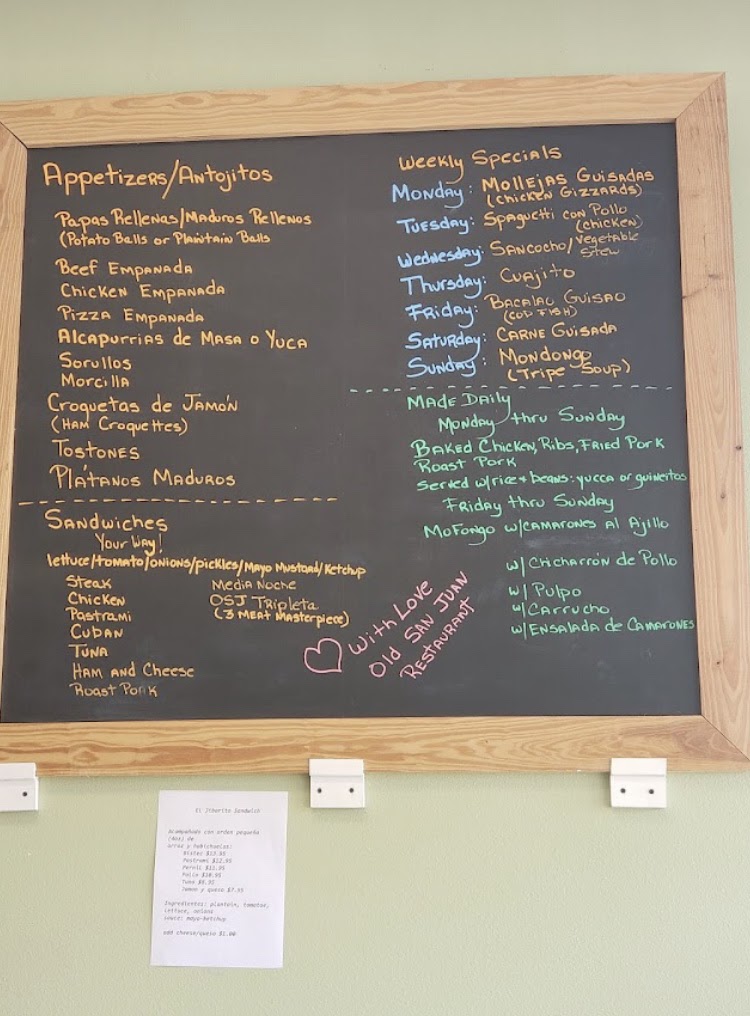 Appetizers/Antojitos
Papas Rellenas/Maduros Rellenos
(Potato Balls or Plaintain Balls
Beef Empanada
Chicken Empanada
Pizza Empanada
Alcapurrias de Masa o Yuca
Sorullos
Morcilla
Croquetas de Jamón
(Ham Croquettes)
Tostones
Plátanos Maduros
Sandwiches
Your Way!
lettuce/tomato/onions/pickles/Mayo Mustard/Ketchup
Steak
Chicken
Pastrami
Cuban
Tuna
Ham and Cheese
Roast Pork
Media Noche
OSJ Tripleta
(3 Meat Masterpiece)
Weekly Specials
Monday: Mollejas Guisadas
(Chicken Gizzards)
Tuesday: Spaguetti con Pollo
(chicken)
Wednesday: Sancocho/Vegetable
Stew
Thursday: Cuajito
Friday: Bacalao Guisao
(Cod Fish)
Saturday: Carne Guisada
Sunday: Mondongo
(Tripe Soup)
Made Daily
Monday thru Sunday
Baked Chicken, Ribs, Fried Pork
Roast Pork
Served w/rice + beans: yucca or guineitos
Friday thru Sunday
Mofongo w/Camarones al Ajillo
w/Chicharrón de Pollo
w/Pulpo
w/Carrucho
w/Ensalada de Camarones
With Love
Old San Juan
Restaurant
El Jibarito Sandwich
Acompañado con orden pequeña
(4oz) de
arroz y habichuelas:
Bistec $13.95
Pastrami $12.95
Pernil $11.95
Pollo $10.95
Tuna $8.95
Jamon y queso $7.95
Ingredientes: plantain, tomatoe,
lettuce, onions
sauce: mayo-ketchup
add cheese/queso $1.00